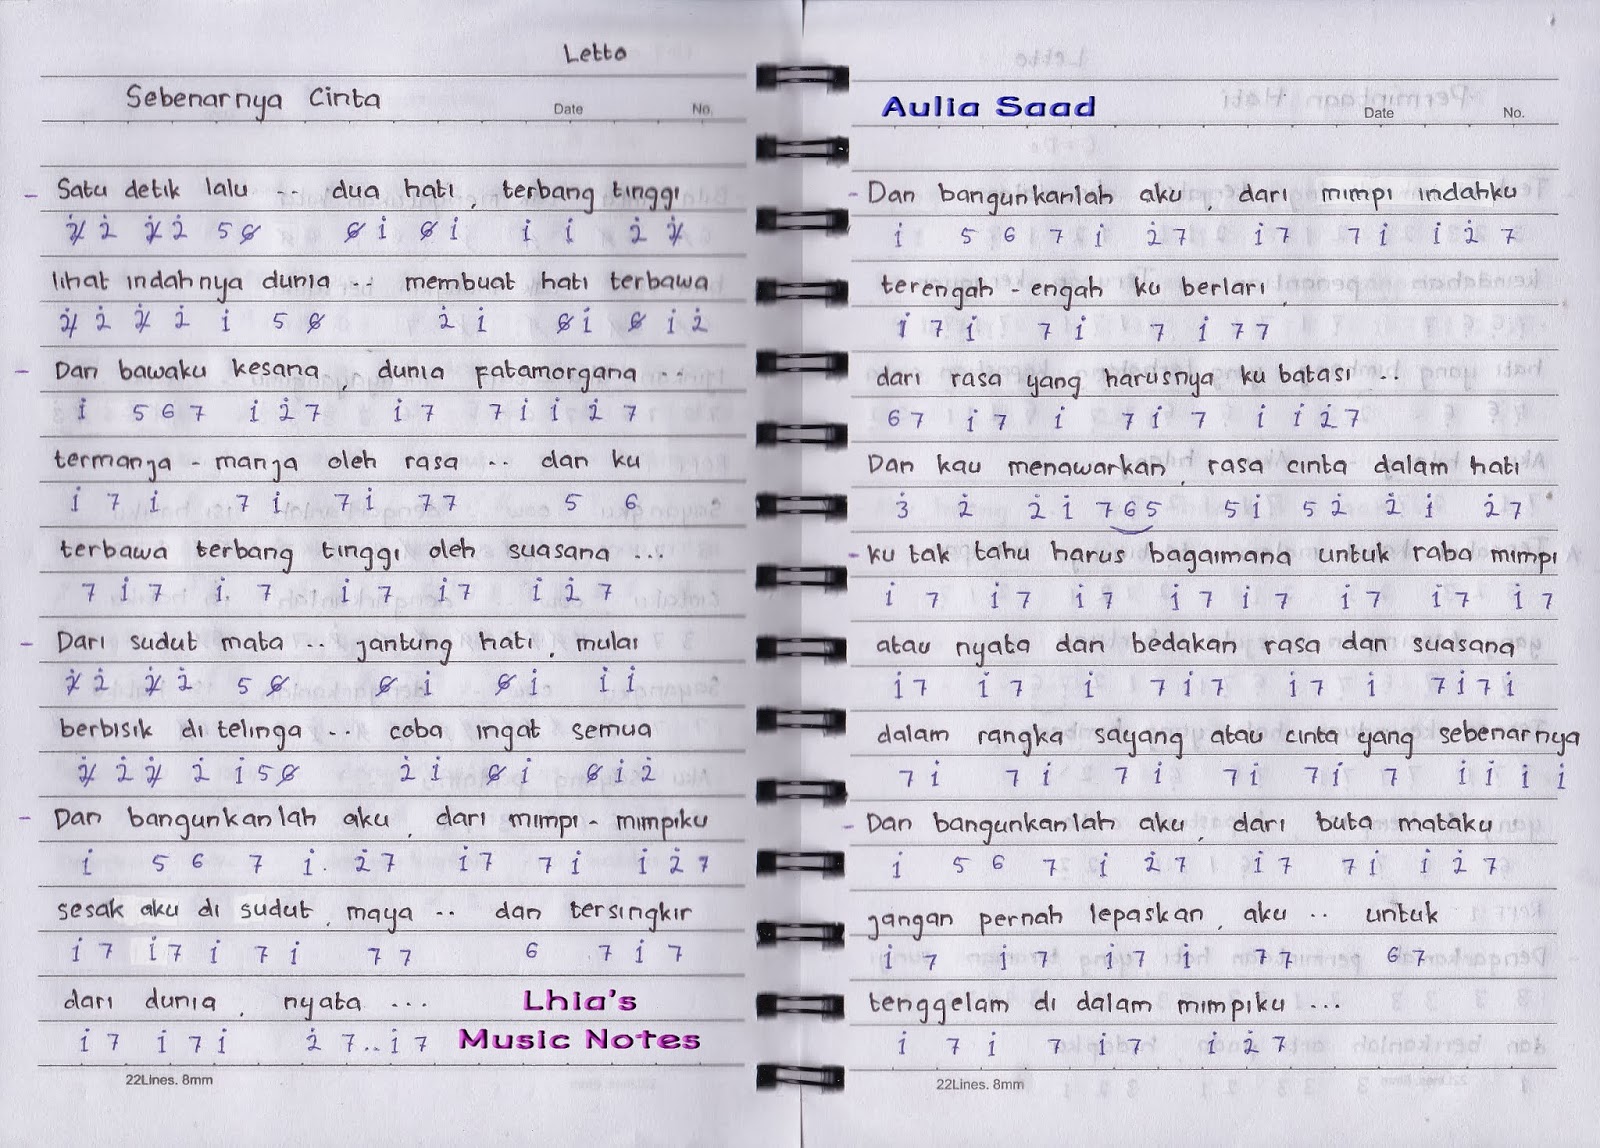 Letto
Sebenarnya Cinta
Date No.
- Satu detik lalu .. dua hati, terbang tinggi
2̸̇ 2̇ 2̸̇ 2̇ 5 6̸ 6̸ 1̇ 6̸ 1̇ 1̇ 1̇ 2̇ 2̸̇
lihat indahnya dunia .. membuat hati terbawa
2̸̇ 2̇ 2̸̇ 2̇ 1̇ 5 6̸ 2̇ 1̇ 6̸ 1̇ 6̸ 1̇ 2̇
- Dan bawaku kesana, dunia fatamorgana ..
1̇ 5 6 7 1̇ 2̇ 7 1̇ 7 7 1̇ 1̇ 2̇ 7
termanja - manja oleh rasa .. dan ku
1̇ 7 1̇ 7 1̇ 7 1̇ 7 7 5 6
terbawa terbang tinggi oleh suasana ...
7 1̇ 7 1̇. 7 1̇ 7 1̇ 7 1̇ 2̇ 7
- Dari sudut mata .. jantung hati, mulai
2̸̇ 2̇ 2̸̇ 2̇ 5 6̸ 6̸ 1̇ 6̸ 1̇ 1̇ 1̇
berbisik di telinga .. coba ingat semua
2̸̇ 2̇ 2̸̇ 2̇ 1̇ 5 6̸ 2̇ 1̇ 6̸ 1̇ 6̸ 1̇ 2̇
- Dan bangunkanlah aku, dari mimpi - mimpiku
1̇ 5 6 7 1̇. 2̇ 7 1̇ 7 7 1̇ 1̇ 2̇ 7
sesak aku di sudut, maya .. dan tersingkir
1̇ 7 1̇ 7 1̇ 7 1̇ 7 7 6 7 1̇ 7
dari dunia, nyata ...
1̇ 7 1̇ 7 1̇ 2̇ 7..1̇ 7
Lhia's
Music Notes
22Lines. 8mm
Aulia Saad
Date No.
- Dan bangunkanlah aku, dari mimpi indahku
1̇ 5 6 7 1̇ 2̇ 7 1̇ 7 7 1̇ 1̇ 2̇ 7
terengah - engah ku berlari,
1̇ 7 1̇ 7 1̇ 7 1̇ 7 7
dari rasa yang harusnya ku batasi ..
6 7 1̇ 7 1̇ 7 1̇ 7 1̇ 1̇ 2̇ 7
Dan kau menawarkan, rasa cinta dalam hati
3̇ 2̇ 2̇ 1̇ 7 6 5 5 1̇ 5 2̇ 2̇ 1̇ 2̇ 7
- ku tak tahu harus bagaimana untuk raba mimpi
1̇ 7 1̇ 7 1̇ 7 1̇ 7 1̇ 7 1̇ 7 1̇ 7 1̇ 7
atau nyata dan bedakan rasa dan suasana
1̇ 7 1̇ 7 1̇ 7 1̇ 7 1̇ 7 1̇ 7 1̇ 7 1̇
dalam rangka sayang atau cinta yang sebenarnya
7 1̇ 7 1̇ 7 1̇ 7 1̇ 7 1̇ 7 1̇ 1̇ 1̇ 1̇
- Dan bangunkanlah aku, dari buta mataku
1̇ 5 6 7 1̇ 2̇ 7 1̇ 7 7 1̇ 1̇ 2̇ 7
jangan pernah lepaskan, aku .. untuk
1̇ 7 1̇ 7 1̇ 7 1̇ 7 7 6 7
tenggelam di dalam mimpiku ...
1̇ 7 1̇ 7 1̇ 7 1̇ 2̇ 7
22Lines. 8mm